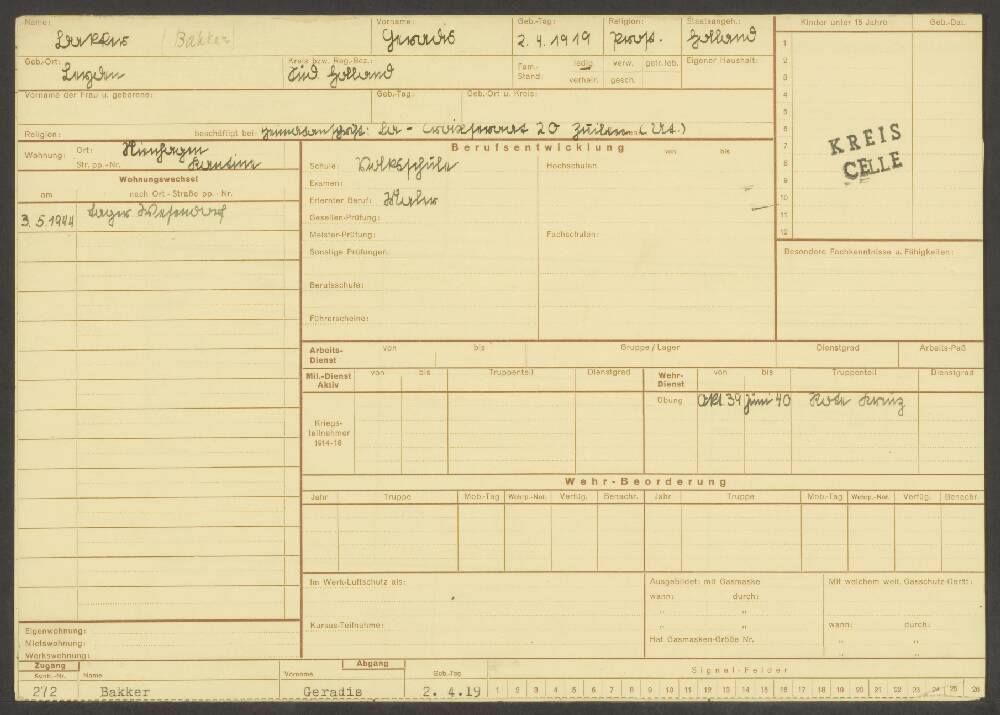 Name: Bakker (Bakker) Vorname: Geradis Geb.-Tag: 2. 4. 1919 Religion: prot. Staatsangeh.: Holland
Geb.-Ort: Leyden Kreis bzw. Reg.-Bez.: Süd Holland Fam.-Stand: ledig verw. getr. leb. verheir. gesch. Eigener Haushalt:
Vorname der Frau u. geborene: Geb.-Tag: Geb.-Ort u. Kreis:
Religion: beschäftigt bei: Heimatanschrift: La - Croixstraat 20 Zuilen (Ut.)
Kinder unter 15 Jahre Geb.-Dat.
1
2
3
4
5
6
7
8
9
10
11
12
KREIS
CELLE
Wohnung: Ort: Nienhagen
Str. pp.-Nr. Kantine
Wohnungswechsel
am nach Ort - Straße pp. - Nr.
3. 5. 1944 Lager Wesendorf
Berufsentwicklung von bis
Schule: Volksschule Hochschulen:
Examen:
Erlernter Beruf: Maler
Gesellen-Prüfung:
Meister-Prüfung: Fachschulen:
Sonstige Prüfungen:
Berufsschule:
Führerscheine:
Besondere Fachkenntnisse u. Fähigkeiten:
Arbeits-Dienst von bis Gruppe / Lager Dienstgrad Arbeits-Paß
Mil.-Dienst Aktiv von bis Truppenteil Dienstgrad Wehr-Dienst von bis Truppenteil Dienstgrad
Übung Okt. 39 Juni 40 Rote Kreuz
Kriegs-
teilnehmer
1914-18
Wehr-Beorderung
Jahr Truppe Mob.-Tag Wehrp.-Not. Verfüg. Benachr. Jahr Truppe Mob.-Tag Wehrp.-Not. Verfüg. Benachr.
Im Werk-Luftschutz als: Ausgebildet: mit Gasmaske Mit welchem weit. Gasschutz-Gerät:
wann: durch:
" "
Kursus-Teilnahme: " " wann: durch:
Hat Gasmasken-Größe Nr. " "
" "
Eigenwohnung:
Mietswohnung:
Werkswohnung:
Zugang Abgang Signal-Felder
Kontr.-Nr. Name Vorname Geb.-Tag
272 Bakker Geradis 2. 4.19 1 2 3 4 5 6 7 8 9 10 11 12 13 14 15 16 17 18 19 20 21 22 23 24 25 26